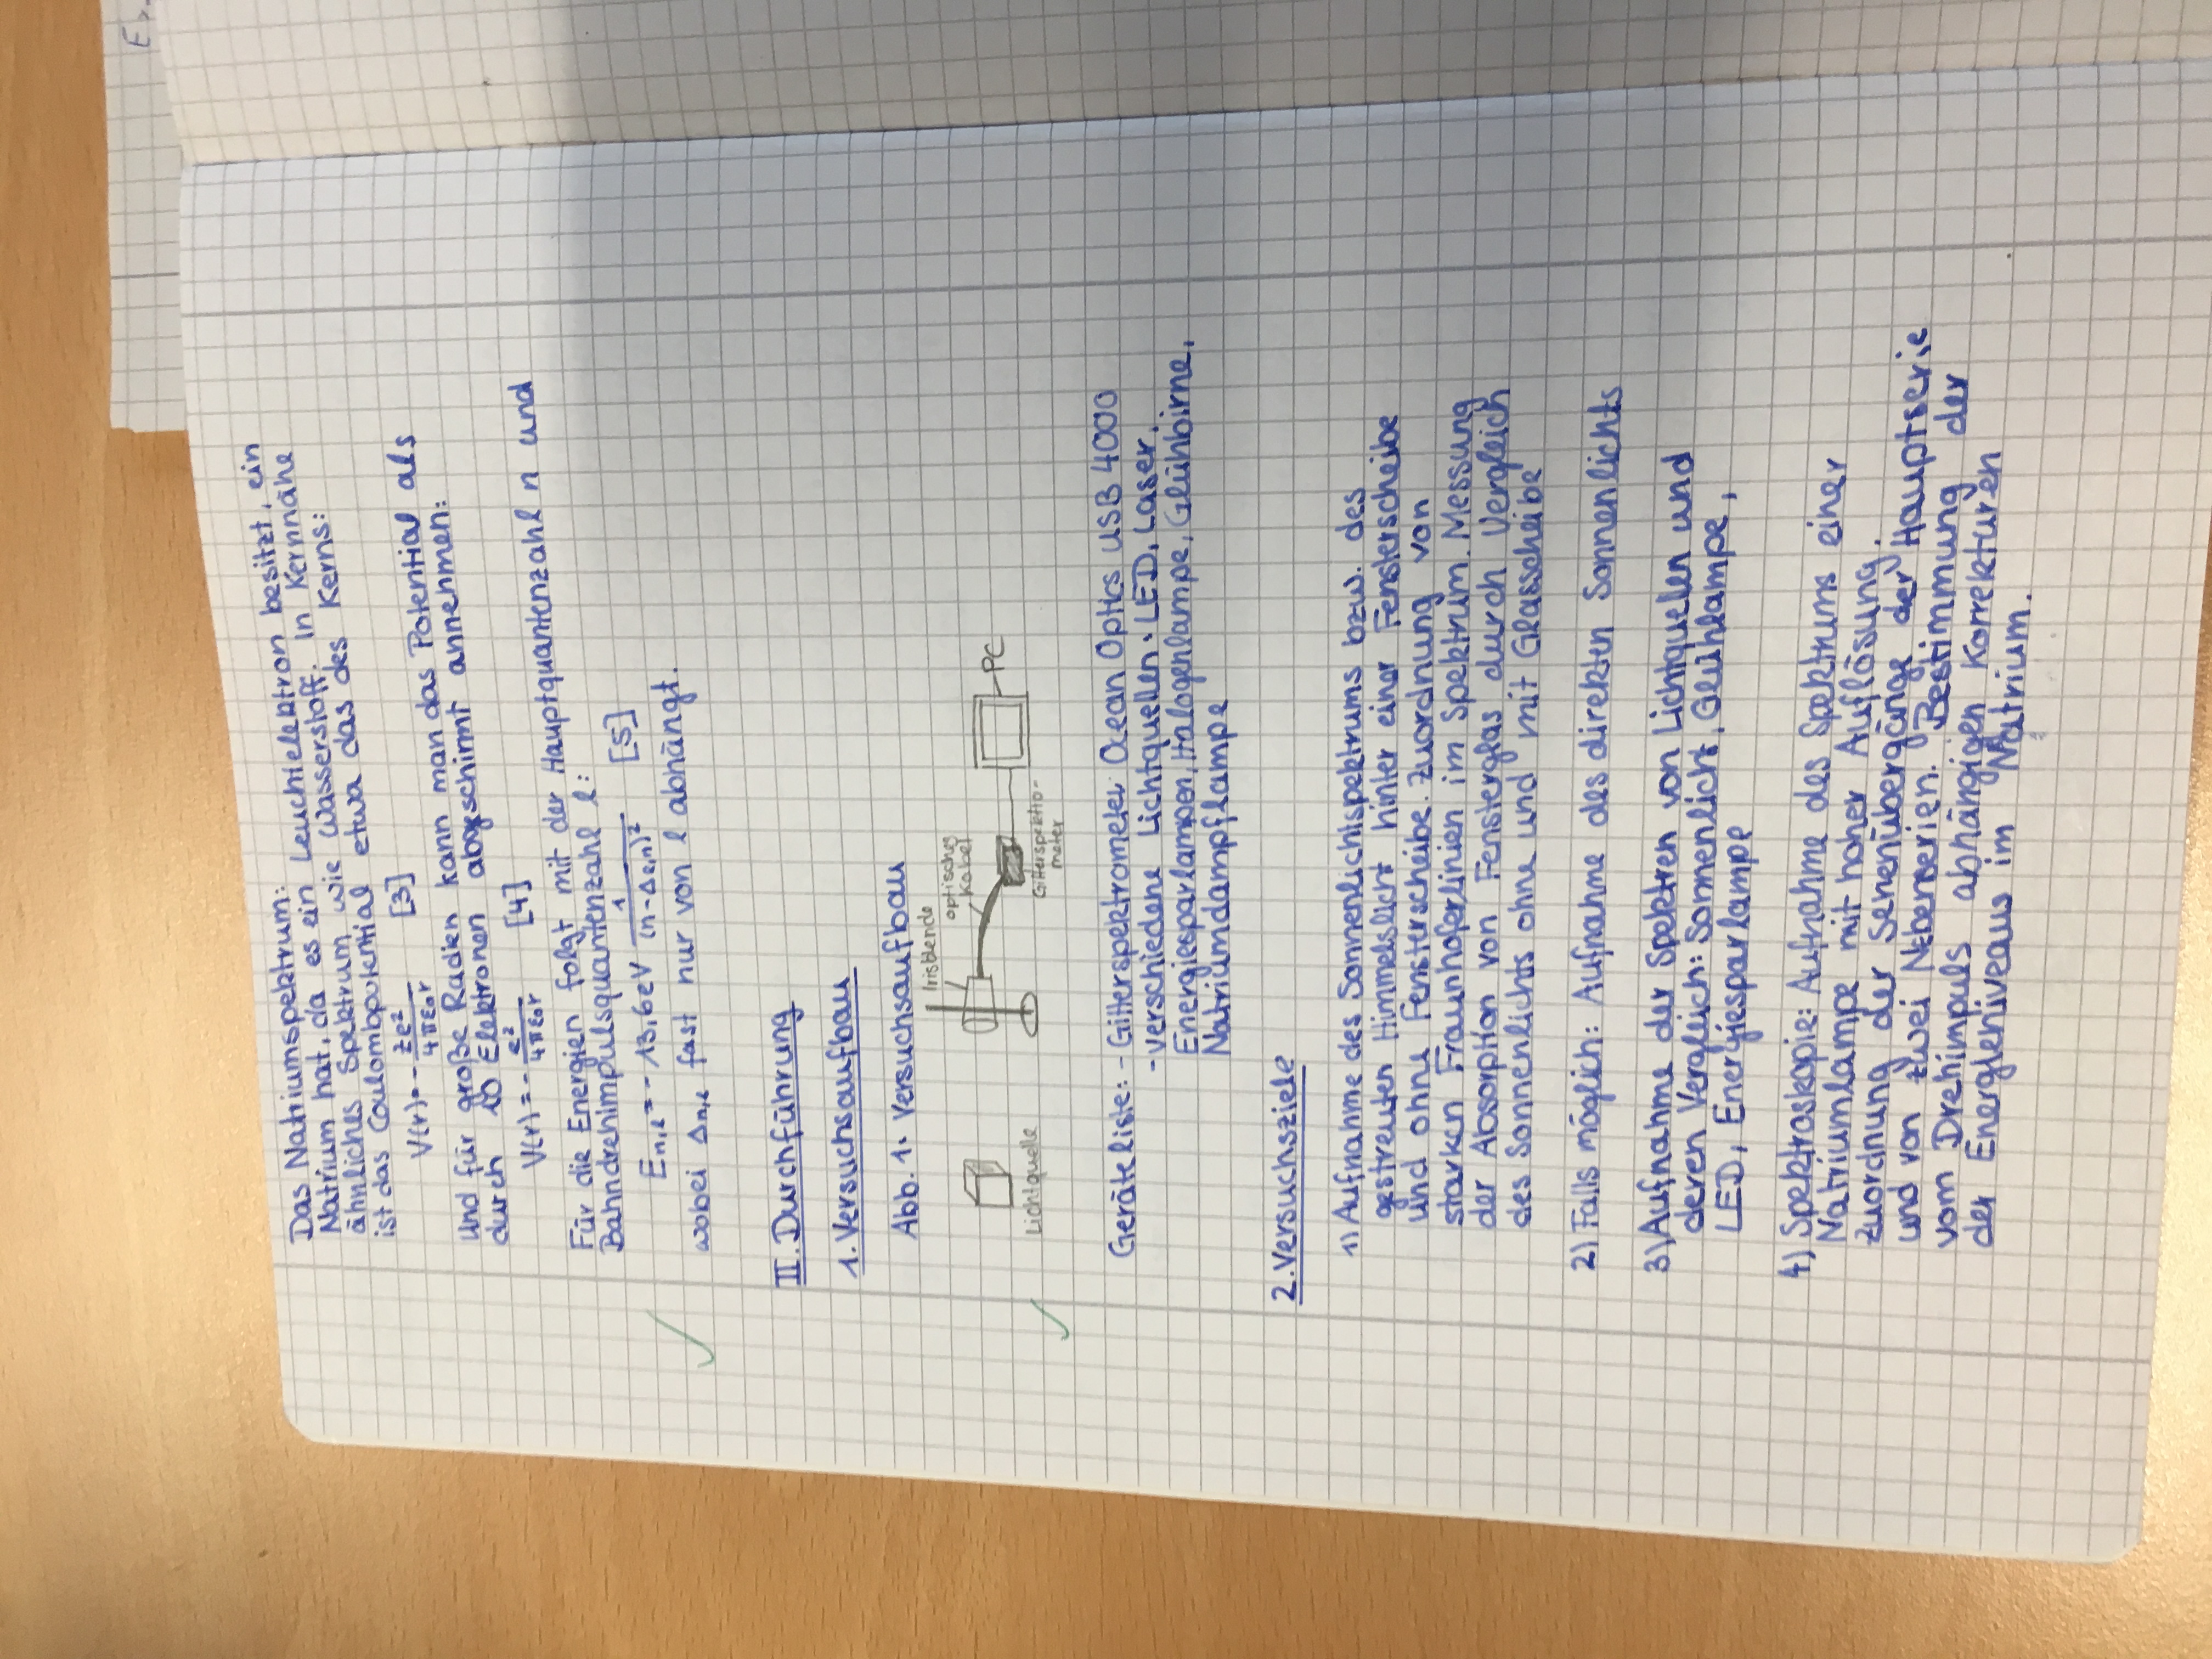 E
Das Natriumspektrum:
Natrium hat, da es ein Leuchtelektron besitzt, ein
ähnliches Spektrum wie Wasserstoff. In Kernnähe
ist das Coulombpotential etwa das des Kerns:
V(r)= - Ze²/4πε₀r [3]
und für große Radien kann man das Potential als
durch 10 Elektronen abgeschirmt annehmen:
V(r) = - e²/4πε₀r [4]
Für die Energien folgt mit der Hauptquantenzahl n und
Bahndrehimpulsquantenzahl l:
Eₙ,ₗ = - 13,6eV 1/(n-Δₗ,ₙ)² [5]
wobei Δₙ,ₗ fast nur von l abhängt.
II. Durchführung
1. Versuchsaufbau
Abb. 1: Versuchsaufbau
Irisblende
optisches
Kabel
PC
Lichtquelle
Gitterspektro-
meter
Geräteliste: - Gitterspektrometer Ocean Optics USB 4000
- verschiedene Lichtquellen: LED, Laser,
Energiesparlampen, Halogenlampe, Glühbirne,
Natriumdampflampe
2. Versuchsziele
1) Aufnahme des Sonnenlichtspektrums bzw. des
gestreuten Himmelslicht hinter einer Fensterscheibe
und ohne Fensterscheibe. Zuordnung von
starken Fraunhoferlinien im Spektrum. Messung
der Absorption von Fensterglas durch Vergleich
des Sonnenlichts ohne und mit Glasscheibe
2) Falls möglich: Aufnahme des direkten Sonnenlichts
3) Aufnahme der Spektren von Lichtquellen und
deren Vergleich: Sonnenlicht, Glühlampe,
LED, Energiesparlampe
4) Spektroskopie: Aufnahme des Spektrums einer
Natriumlampe mit hoher Auflösung.
Zuordnung der Serienübergänge der Hauptserie
und von zwei Nebenserien. Bestimmung der
vom Drehimpuls abhängigen Korrekturen
der Energieniveaus im Natrium.